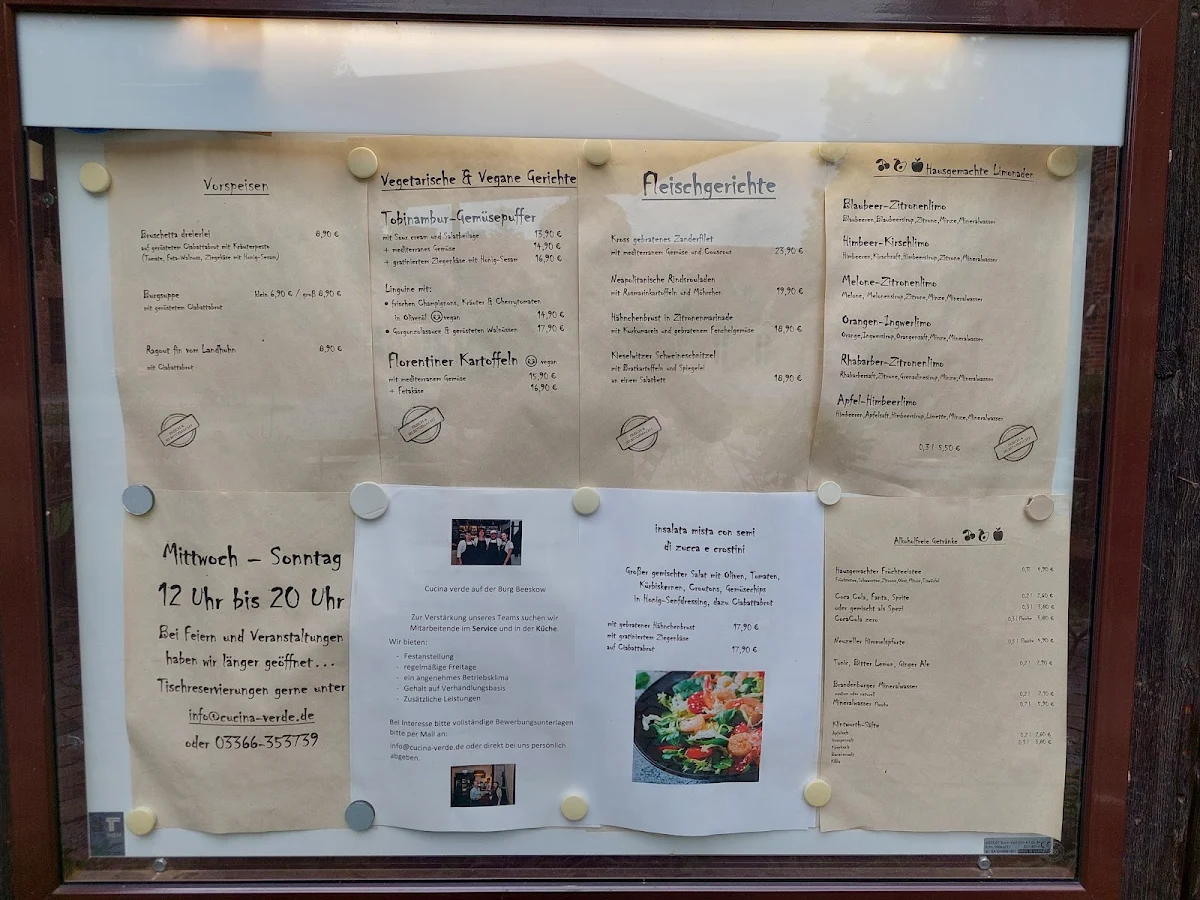 Vorspeisen
Bruschetta dreierlei 8,90 €
auf geröstetem Ciabattabrot mit Kräuterpesto
(Tomate, Feta-Walnuss, Ziegenkäse mit Honig-Sesam)
Burgsuppe klein 6,90 € / groß 8,90 €
mit geröstetem Ciabattabrot
Ragout fin vom Landhuhn 8,90 €
mit Ciabattabrot
Vegetarische & Vegane Gerichte
Tobinambur-Gemüsepuffer
mit Sour cream und Salatbeilage 13,90 €
+ mediterranes Gemüse 14,90 €
+ gratiniertem Ziegenkäse mit Honig-Sesam 16,90 €
Linguine mit:
• frischen Champignons, Kräuter & Cherrytomaten
in Olivenöl vegan 14,90 €
• Gorgonzolasauce & gerösteten Walnüssen 17,90 €
Florentiner Kartoffeln vegan
mit mediterranem Gemüse 15,90 €
+ Fetakäse 16,90 €
Fleischgerichte
Kross gebratenes Zanderfilet
mit mediterranem Gemüse und Couscous 23,90 €
Neapolitanische Rindsrouladen
mit Rosmarinkartoffeln und Möhrchen 19,90 €
Hähnchenbrust in Zitronenmarinade
mit Kurkumareis und gebratenem Fenchelgemüse 18,90 €
Kieselwitzer Schweineschnitzel
mit Bratkartoffeln und Spiegelei
an einem Salatbett 18,90 €
Hausgemachte Limonaden
Blaubeer-Zitronenlimo
Blaubeeren, Blaubeersirup, Zitrone, Minze, Mineralwasser
Himbeer-Kirschlimo
Himbeeren, Kirschsaft, Himbeersirup, Zitrone, Mineralwasser
Melone-Zitronenlimo
Melone, Melonensirup, Zitrone, Minze, Mineralwasser
Orangen-Ingwerlimo
Orange, Ingwersirup, Orangensaft, Minze, Mineralwasser
Rhabarber-Zitronenlimo
Rhabarbersaft, Zitrone, Grenadinesirup, Minze, Mineralwasser
Apfel-Himbeerlimo
Himbeeren, Apfelsaft, Himbeersirup, Limette, Minze, Mineralwasser
0,3 l 5,50 €
Mittwoch – Sonntag
12 Uhr bis 20 Uhr
Bei Feiern und Veranstaltungen
haben wir länger geöffnet...
Tischreservierungen gerne unter
info@cucina-verde.de
oder 03366-353739
Cucina verde auf der Burg Beeskow
Zur Verstärkung unseres Teams suchen wir
Mitarbeitende im Service und in der Küche.
Wir bieten:
- Festanstellung
- regelmäßige Freitage
- ein angenehmes Betriebsklima
- Gehalt auf Verhandlungsbasis
- Zusätzliche Leistungen
Bei Interesse bitte vollständige Bewerbungsunterlagen
bitte per Mail an:
info@cucina-verde.de oder direkt bei uns persönlich
abgeben.
insalata mista con semi
di zucca e crostini
Großer gemischter Salat mit Oliven, Tomaten,
Kürbiskernen, Croutons, Gemüsechips
in Honig-Senfdressing, dazu Ciabattabrot
mit gebratener Hähnchenbrust 17,90 €
mit gratiniertem Ziegenkäse
auf Ciabattabrot 17,90 €
Alkoholfreie Getränke
Hausgemachter Früchteeistee
Coca Cola, Fanta, Sprite
oder gemischt als Spezi
CocaCola zero
Neuzeller Himmelspforte
Tonic, Bitter Lemon, Ginger Ale
Brandenburger Mineralwasser
Mineralwasser Flasche
Klintworth-Säfte
Apfelsaft